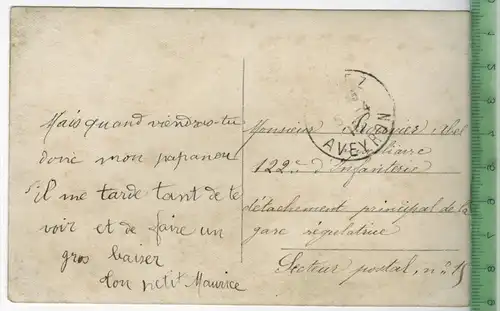 Mais quand viendras-tu
donc mon papanou
s'il me tarde tant de te
voir et de faire un
gros baiser
Ton petit Maurice
AVEYRON
Monsieur Abel
122e d'Infanterie
détachement principal de la
gare régulatrice
Secteur postal, n° 15